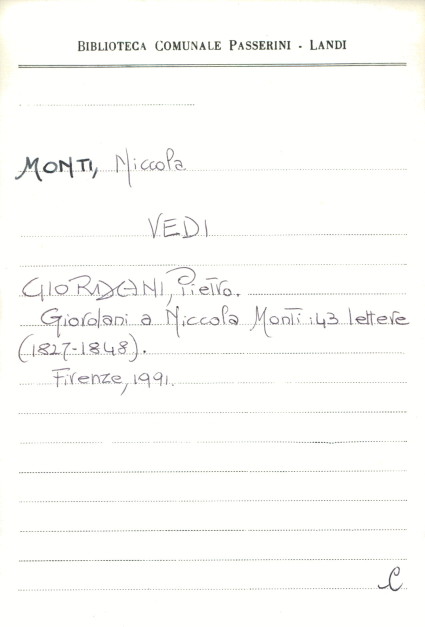 BIBLIOTECA COMUNALE PASSERINI - LANDI
MONTI, Niccola
VEDI
GIORDANI, Pietro.
Giordani a Niccola Monti : 43 lettere
(1827-1848).
Firenze, 1991.